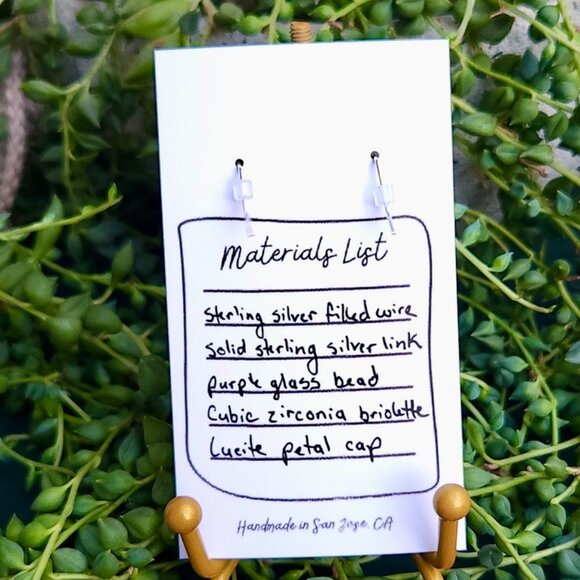 Materials List
sterling silver filled wire
solid sterling silver link
purple glass bead
Cubic zirconia briolette
Lucite petal cap
Handmade in San Jose, CA